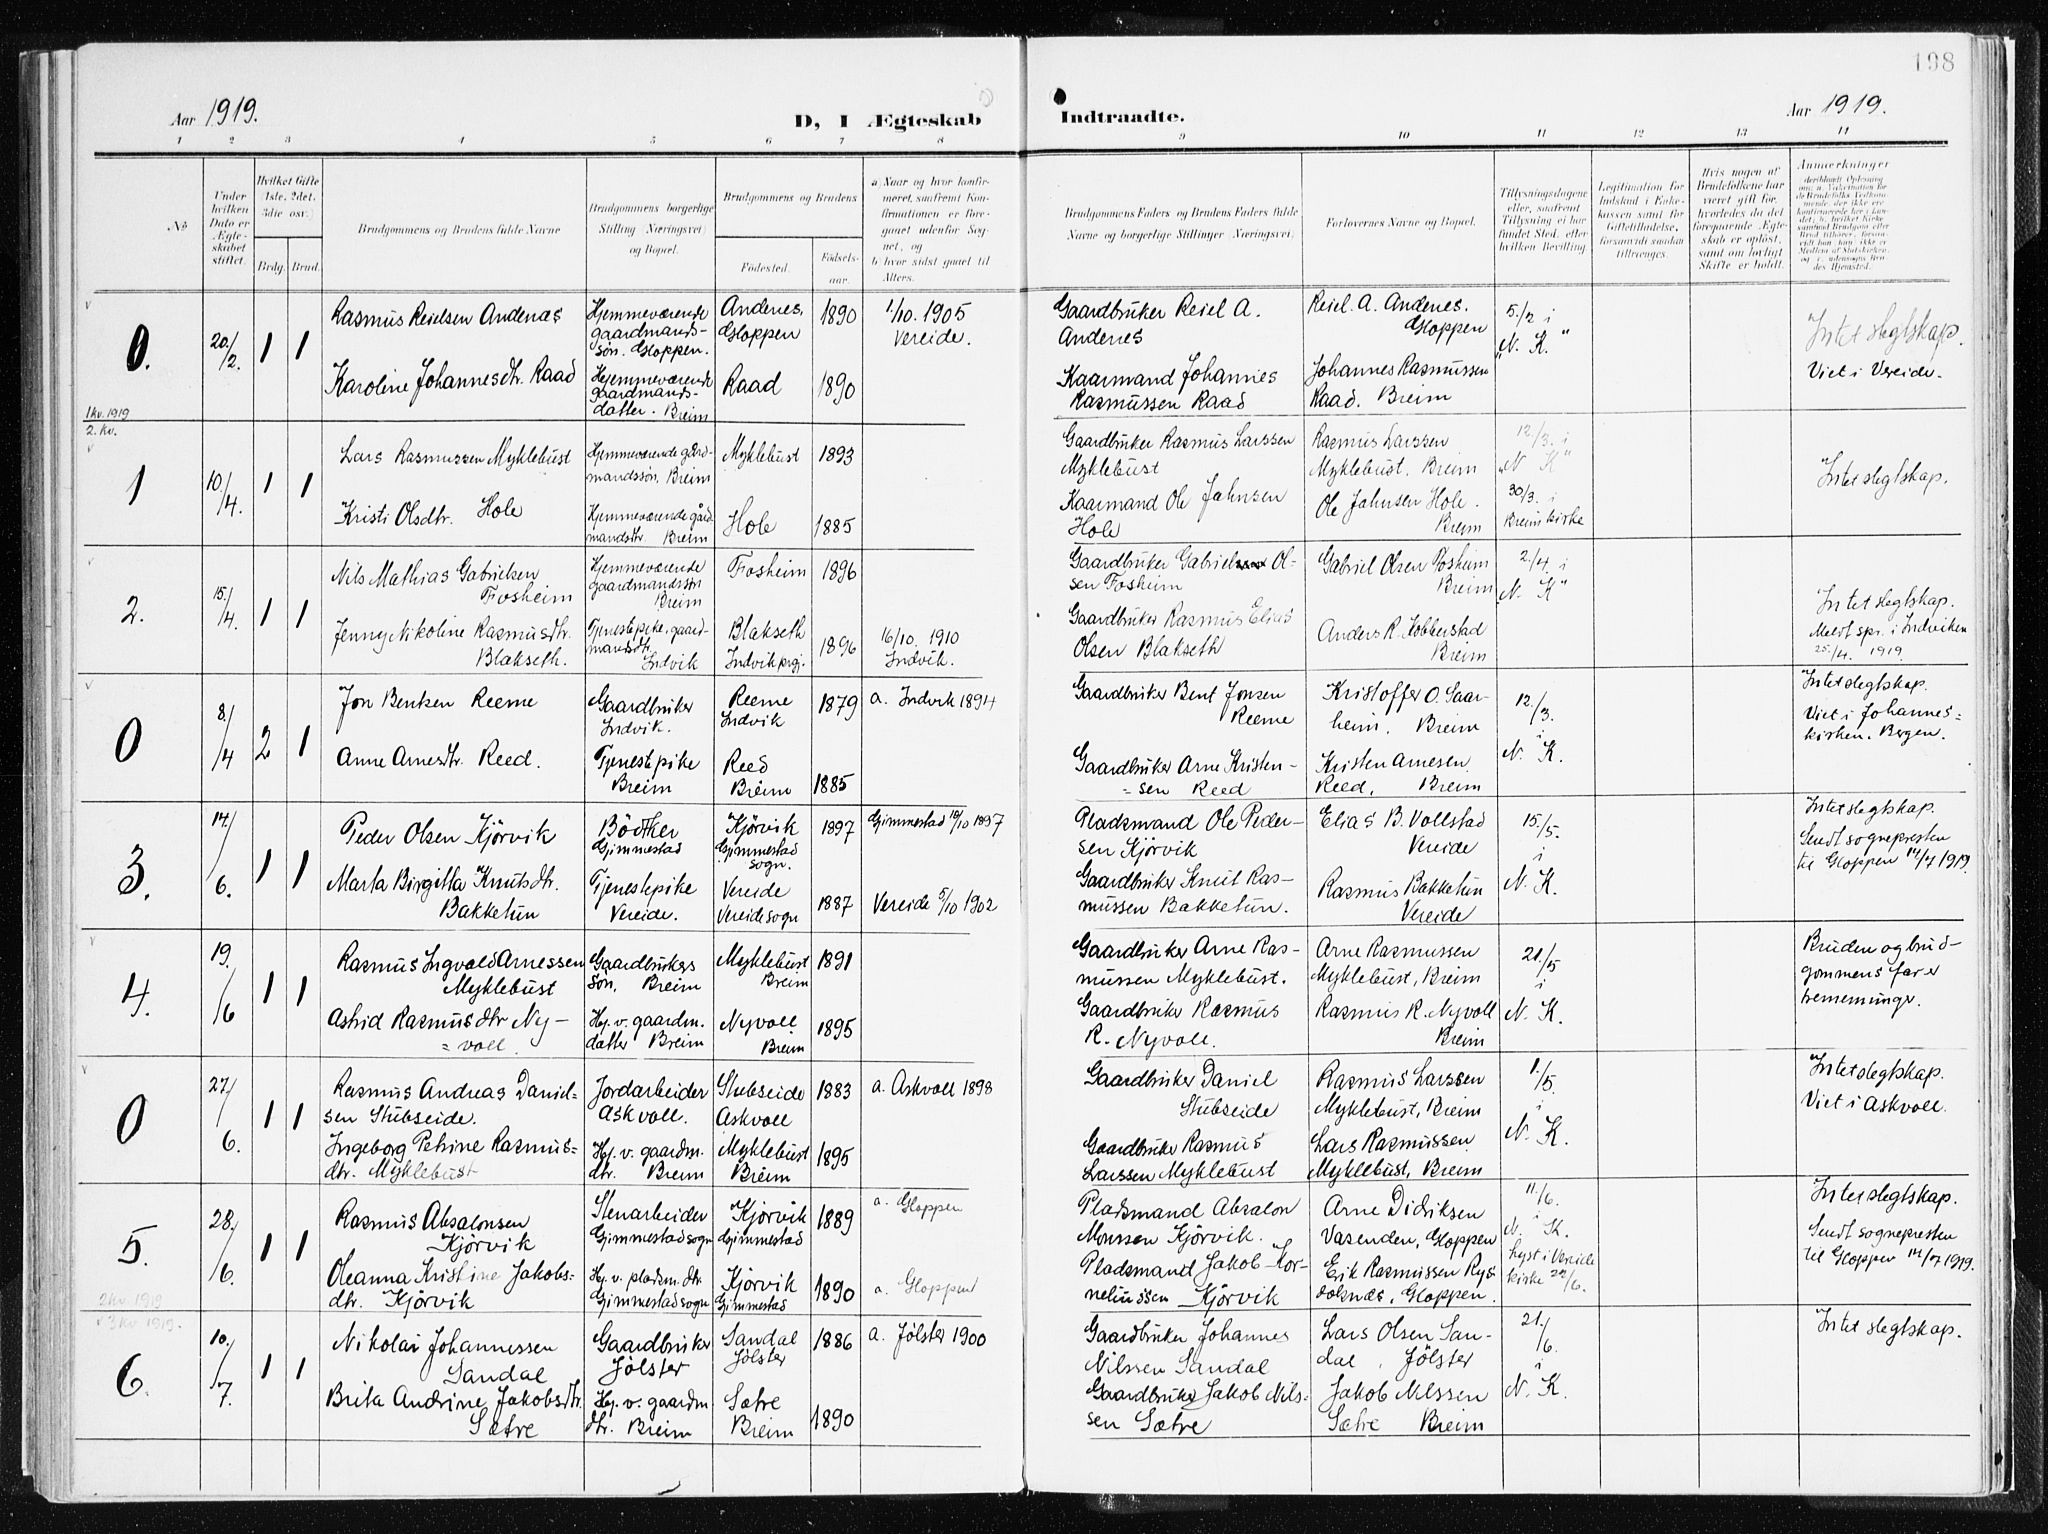 198
Aar 1919.
D, I Ægteskab
Indtraadte.
Aar 1919.
1 2 3 4 5 6 7 8 9 10 11 12 13 14
No
Under hvilken Dato er Ægteskabet stiftet.
Hvilket Gifte 1ste, 2det, 3die osv.
Brdg. Brud.
Brudgommens og Brudens fulde Navne
Brudgommens borgerlige Stilling (Næringsvei) og Bopæl.
Brudgommens og Brudens
Födested.
Födselsaar.
a) Naar og hvor konfirmeret, saafremt Konfirmationen er foregaaet udenfor Sognet, og
b) hvor sidst gaaet til Alters.
Brudgommens Faders og Brudens Faders fulde Navne og borgerlige Stillinger (Næringsvei)
Forlovernes Navne og Bopæl.
Tillysningsdagene eller, saafremt Tillysning ei har fundet Sted, efter hvilken Bevilling.
Legitimation for Indskud i Enkekassen samt for Giftetilladelse, forsaavidt saadan tiltrænges.
Hvis nogen af Brudefolkene har været gift för, hvorledes da det foregaaende Ægteskab er oplöst, samt om lovligt Skifte er holdt.
Anmerkninger
0.
20/2.
1 1
Rasmus Reielsen Andenæs
Hjemmeværende
gaardmands-
søn. Gloppen.
Andenes,
Gloppen
1890
1/10. 1905
Vereide.
Gaardbruker Reiel A.
Andenes
Reiel. A. Andenes.
Gloppen
5/2 i
"N. K."
Intet slegtskap.
Viet i Vereide.
Karoline Johannesdtr. Raad
Hjemmeværende
gaardmands-
datter. Breim
Raad
1890
Kaarmand Johannes
Rasmussen Raad
Johannes Rasmussen
Raad. Breim
1 kv. 1919
2. kv.
1
10/4.
1 1
Lars Rasmussen Myklebust
Hjemmeværende gård-
mandssøn, Breim
Myklebust
1893
Gaardbruker Rasmus Larssen
Myklebust
Rasmus Larssen
Myklebust. Breim
12/3. i
"N K"
Intet slegtskap.
Kristi Olsdtr. Hole
Hjemmeværende gård
mandsdtr. Breim
Hole
1885
Kaarmand Ole Jahnsen
Hole
Ole Jahnsen Hole.
Breim
30/3. i
Breim kirke
2.
15/4.
1 1
Nils Mathias Gabrielsen
Fosheim
Hjemmeværende
gaardmandssøn
Breim
Fosheim
1896
Gaardbruker Gabriel Ol-
sen Fosheim
Gabriel Olsen Fosheim
Breim
2./4. i
"N. K"
Intet slegtskap.
Meldt spr. i Indviken
25/4. 1919.
Jenny Nikoline Rasmusdtr.
Blakseth.
Tjenestepike, gaard-
mandsdtr.
Indvik
Blakseth
Indvik prgj.
1896
16/10. 1910
Indvik.
Gaardbruker Rasmus Elias
Olsen Blakseth
Anders R. Hobberstad
Breim
0
8/4
2 1
Jon Bentsen Reeme
Gaardbruker
Indvik.
Reeme
Indvik
1879
a. Indvik 1894
Gaardbruker Bent Jonsen
Reeme
Kristoffer O. Saar-
heim, Breim
12/3.
i
N. K.
Intet slegtskap.
Viet i Johannes=
kirken. Bergen.
Anne Arnesdtr. Reed.
Tjenestepike
Breim
Reed
Breim
1885
Gaardbruker Arne Kristen-
=sen Reed
Kristen Arnesen
Reed, Breim
3.
14/6.
1 1
Peder Olsen Kjörvik
Bödtker
Gimmestad
Kjörvik
Gimmestad
sogn.
1897
Gjimmestad
Pladsmand Ole Peder-
sen Kjörvik
Elias B. Vollstad
Vereide
15/5.
i
N. K.
Intet slegtskap.
Sendt sognepresten
til Gloppen 14/7 1919.
Marta Birgitta Knutsdtr.
Bakketun
Tjenestepike
Vereide.
Vereide
Vereide sogn
1887
Vereide 5/10 1902
Gaardbruker Knut Ras-
mussen Bakketun.
Rasmus Bakketun
Vereide
4.
19/6
1 1
Rasmus Ingvald Arnessen
Myklebust
Gaardbrukers
søn, Breim
Myklebust
Breim
1891
Gaardbruker Arne Ras-
mussen Myklebust.
Arne Rasmussen
Myklebust, Breim
21/5
i
N. K.
Bruden og brud-
gommens far er
tremenninger.
Astrid Rasmusdtr Ny-
=voll.
Hj. v. gaardm.
datter Breim
Nyvoll
Breim
1895
Gaardbruker Rasmus
R. Nyvoll.
Rasmus R. Nyvoll
Breim
0
27/6.
1 1
Rasmus Andreas Daniel-
sen Stubseide.
Jordarbeider
Askvoll.
Stubseide
Askvoll
1883
a. Askvoll 1898
Gaardbruker Daniel
Stubseide
Rasmus Larssen
Myklebust, Breim
1/5.
i
N. K.
Intet slegtskap.
Viet i Askvoll.
Ingeborg Petrine Rasmus=
dtr. Myklebust
Hj. v. gaardm.
dtr. Breim
Myklebust
Breim
1895
Gaardbruker Rasmus
Larssen Myklebust
Lars Rasmussen
Myklebust, Breim
5.
28/6.
1 1
Rasmus Absalonsen
Kjörvik
Stenarbeider
Gjimmestad sogn
Kjörvik
Gjimmestad
1889
a. Gloppen
Pladsmand Absalon
Monssen Kjörvik.
Arne Didriksen
Vasenden, Gloppen
11/6.
i
N. K.
Lyst i Vereide
kirke 22/6.
Intet slegtskap.
Sendt sognepresten
til Gloppen 14/7 1919.
Oleanna Kristine Jakobs=
dtr. Kjörvik
Hj. v. pladsm. dtr
Gimmestad sogn
Kjörvik
Gimmestad
1890
a. Gloppen
Pladsmand Jakob Kor-
neliussen Kjörvik
Erik Rasmussen Rys
doknes, Gloppen.
2 kv. 1919
3 kv 1919.
6.
10/7.
1 1
Nikolai Johannessen
Sandal
Gaardbruker
Jölster
Sandal
Jölster
1886
a. Jölster 1900
Gaardbruker Johannes
Nilssen Sandal
Lars Olsen San-
dal, Jölster
21/6.
i
N. K.
Intet slegtskap.
Brita Andrine Jakobsdtr.
Sætre
Hj. v. gaardm
dtr. Breim
Sætre
Breim
1890
Gaardbruker Jakob Nils=
sen Sætre
Jakob Nilssen
Sætre Breim